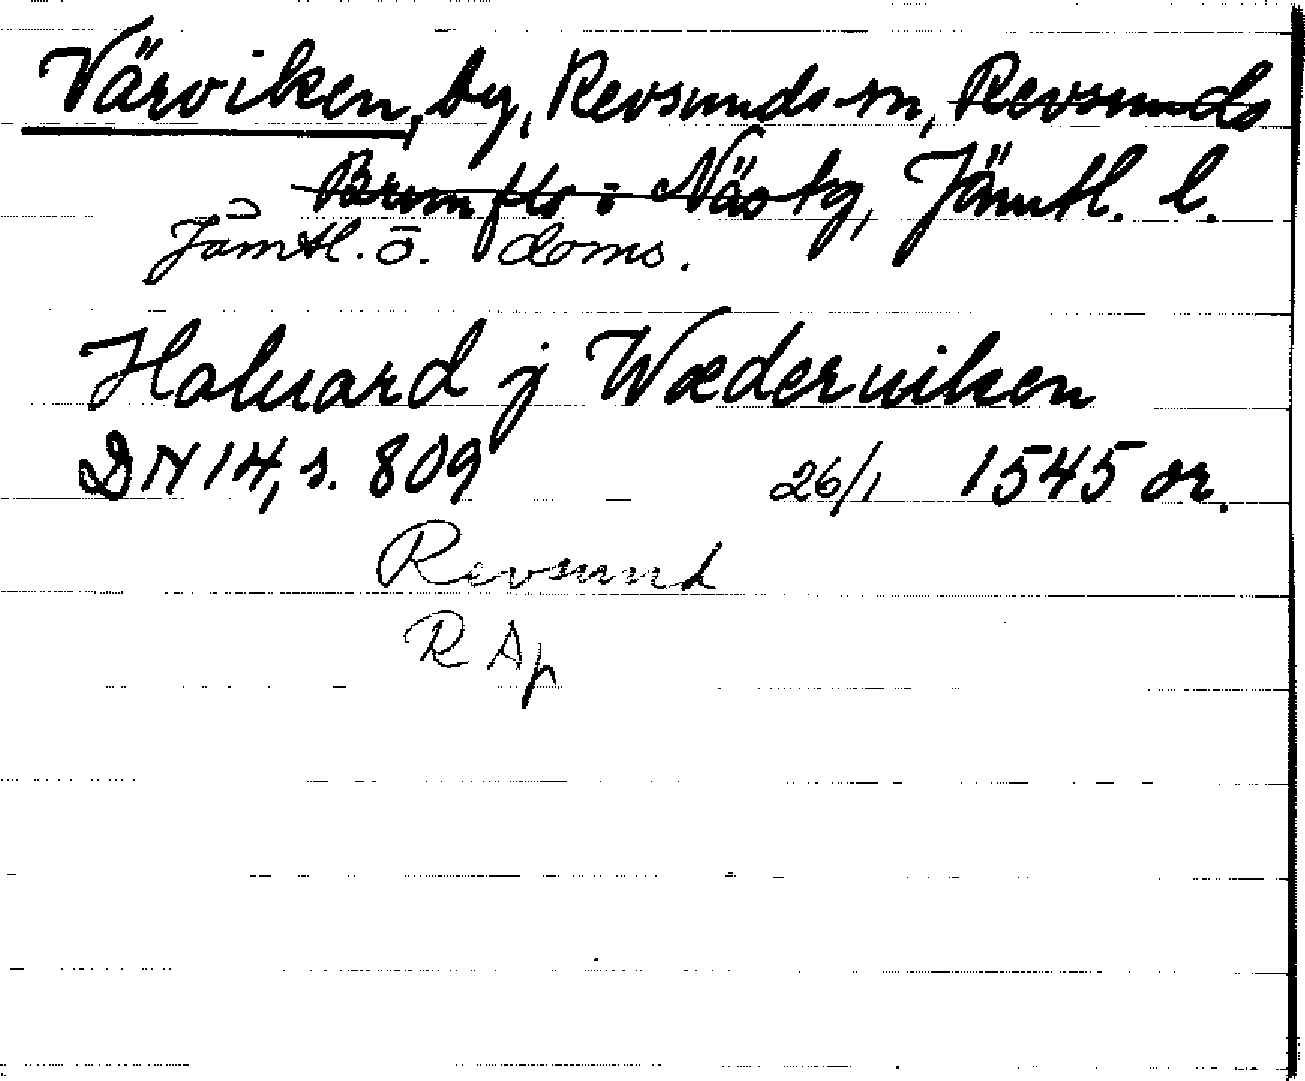 Värviken, by, Revsunds sn, Revsunds
Brunflo o Näs tg, Jämtl. l.
Jämtl. ö. doms.
Haluard j Wæderuiken
DN 14, s. 809 26/1 1545 or.
Revsund
R Ap